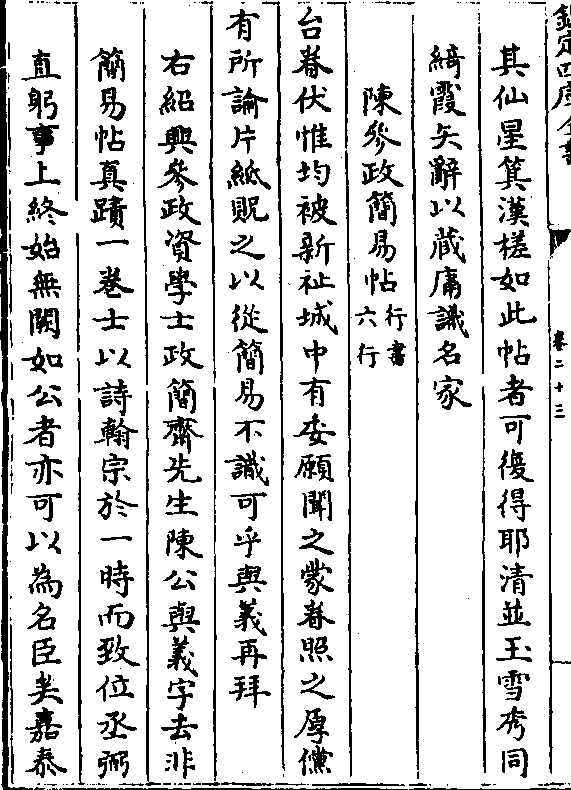 欽定四庫全書
卷二十三
其仙星箕漢槎如此帖者可復得耶清並玉雪秀同
綺霞矢辭以藏庸識名家
陳參政簡易帖行書六行
台眷伏惟均被新祉城中有委願聞之蒙眷照之厚儻
有所論片紙貺之以從簡易不識可乎與義再拜
右紹興參政資學士政簡齋先生陳公與義字去非
簡易帖真蹟一卷士以詩翰宗於一時而致位丞弼
直躬事上終始無闕如公者亦可以為名臣矣嘉泰